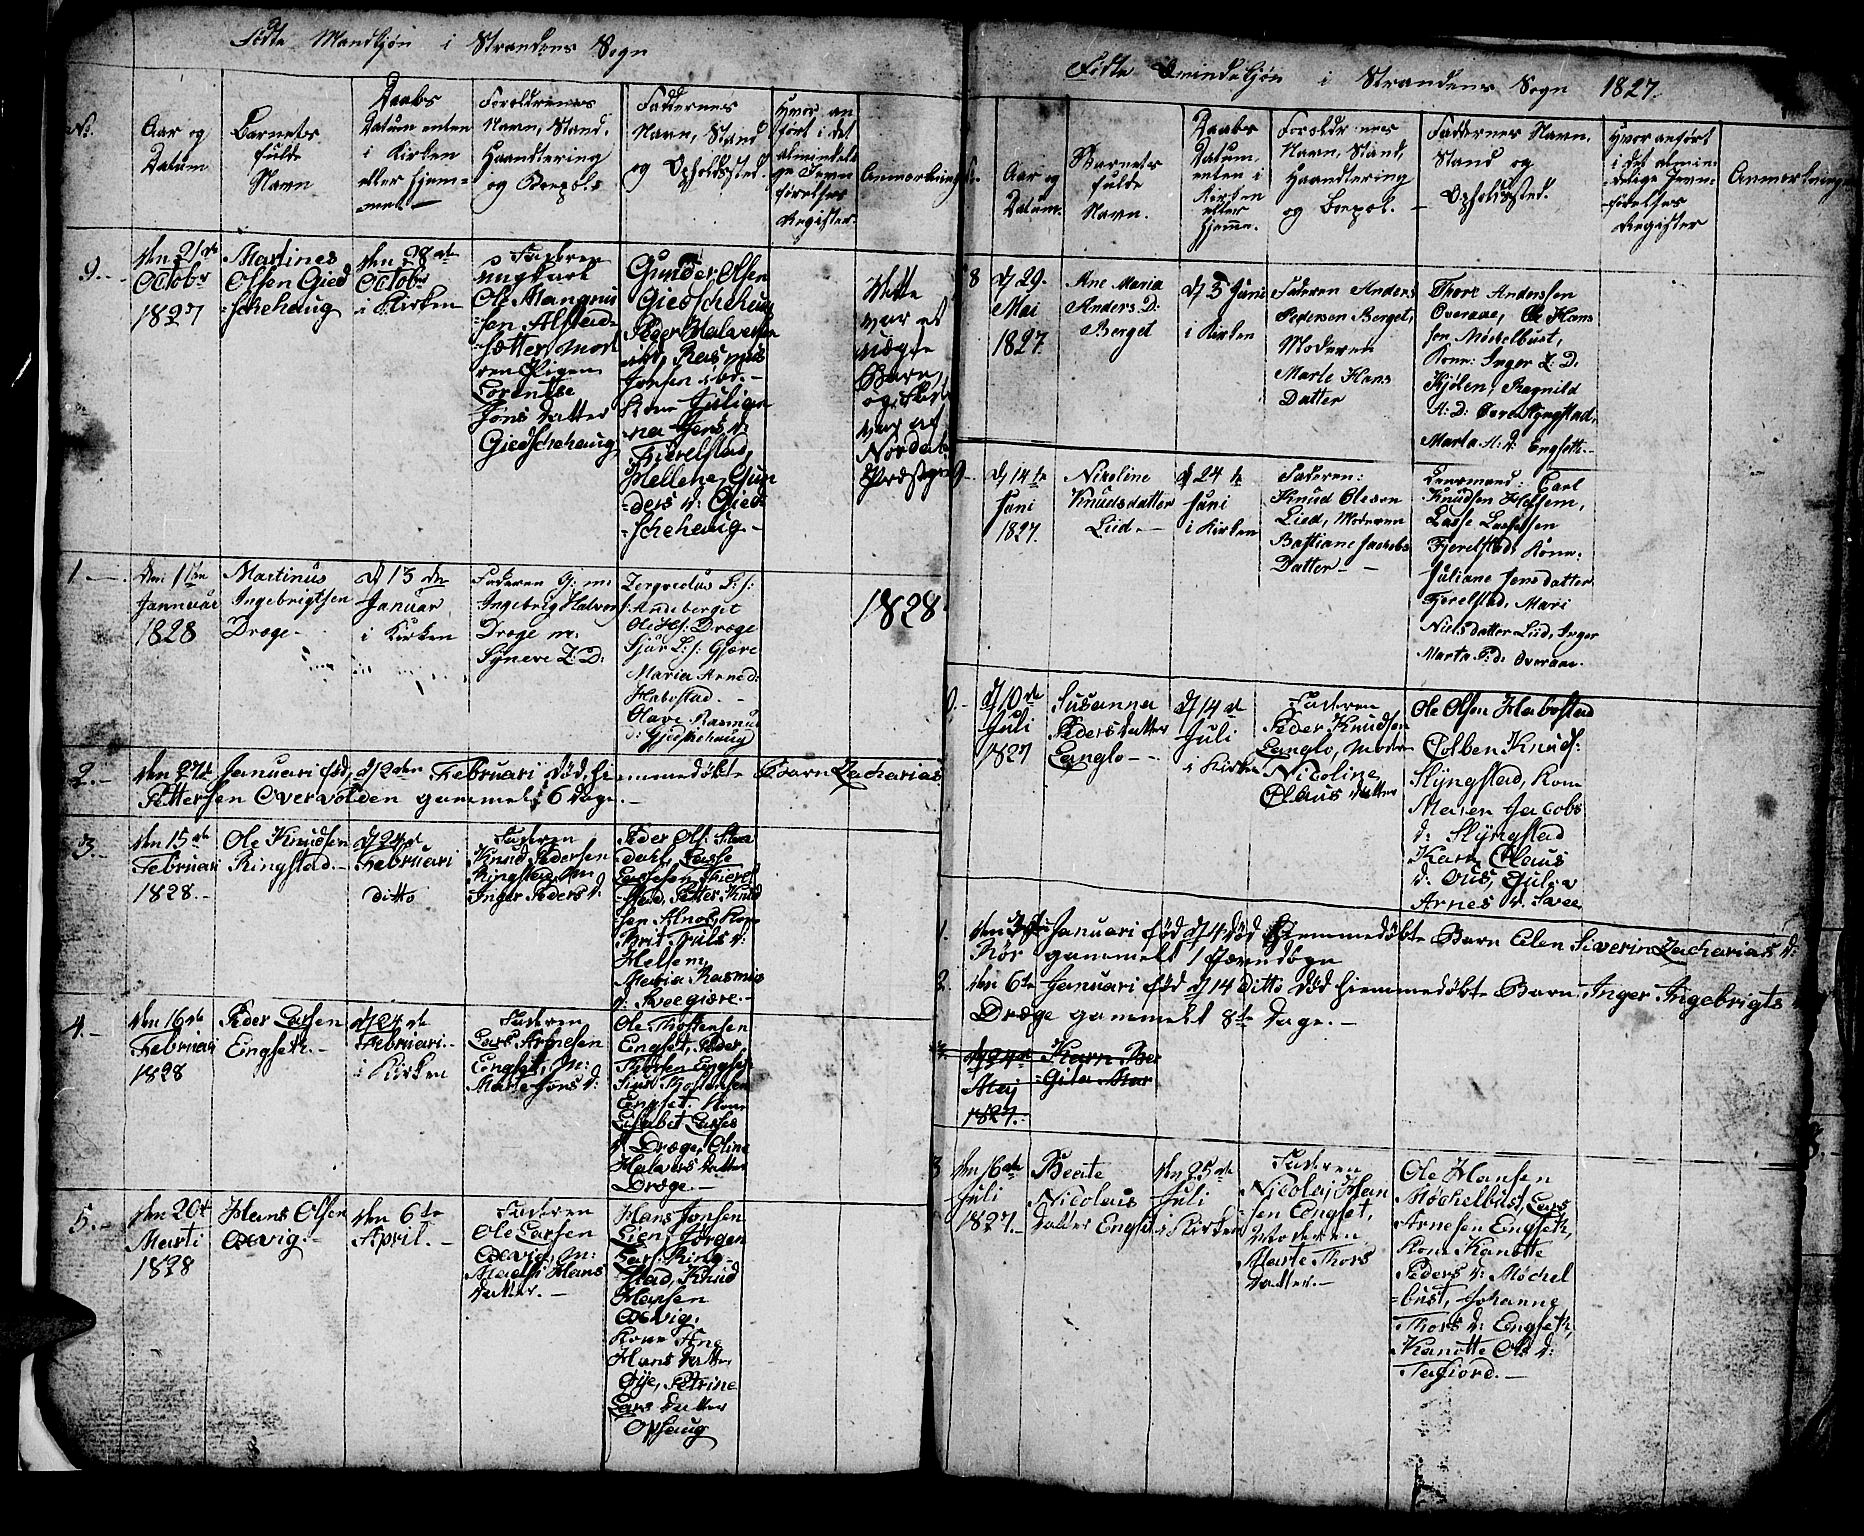 Fødte Mandkjøn i Strandens Sogn
No.
Aar og
Datum
Barnets
fulde
Navn
Daabs
Datum enten
i Kirken
eller hjem-
met
Forældrenes
Navn, Stand,
Haandtering
og Boepæl.
Faddernes
Navn, Stand
og Opholdssted.
Hvor an
ført i det
almindeli
ge Jevn
førelses
Register.
Anmærkning
9.
den 21de
Octobr
1827
Martines
Olsen Gied
=schehaug
den 28de
Octobr
i Kirken
Faderen
ungkarl
Ole Mangnu
sen Alstad=
sætter, mod
ren Pigen
Lorentse
Jons datter
Giedschehaug
Gunder Olsen
Giedschehaug
Peder Halvorsen
ibd, Rasmus
Jonsen ibd.-
Kone Juliga
na Jens d:
Fierelstad,
Hellene Gun
ders d: Gied
=schehaug.-
Dette
var et
uægte
Barn,
og
var af
Nordals
Præstegie
1
den 1ste
Januari
1828
Martinus
Ingebrigtsen
Drøge
d 13de
Januar
i Kirken
Faderen G: m:
Ingebrig Halvors
Drøge m:
Syneve L: D:
L: s:
Andeberget
Ole H s: Drøge
Sjur L: s: Gjære
Maria Arne d:
Habostad.
Olave Rasmus
d: Gjedschehaug
1828
2.
den 27de Januari fød, d 2den Februari død, hiemmedøbte Barn Zacharias
Pettersen Overvolden gammel 6 Dage.
3.
den 15de
Februari
1828.
Ole Knudsen
Ringstad.
d 24de
Februari
ditto
Faderen
Knud Pedersen
Ringstad, M:
Inger Peders d:
Peder Ols:
Lasse
Lassesen Fierel
stad, Petter Knud
sen Alnes, Kone
Brit d:
Helsem,
Maria Rasmus
d: Sveegiære.
4.
den 16de
Februari
1828
Peder Larsen
Engseth.
d 24de
Februari.
i Kirken
Faderen
Lars Arnesen
Engset, M:
Marte Jons d:
Ole Thostensen
Engset, Peder
Engset
Siur Thostensen
Engset. Kone
Elisabet Lasses
d Drøge, Oline
Halvors datter
Drøge.
5.
den 20de
Marti
1828
Hans Olsen
Oxvig.
den 6te
April.
Faderen
Ole Larsen
Oxvig, M:
Madli Hans
datter.
Hans Jonsen
Lien, Jørgen
Lars: Ring
stad, Knud
Hansen
Oxvig.
Kone Ane
Hans datter
Øye, Petrine
Lars datter
Ophaug
Fødte Qvindekjøn i Strandens Sogn 1827.
Aar og
Datum.
Barnets
fulde
Navn.
Daabs
Datum
enten i
Kirken
eller
hjeme.
Forældrenes
Navn, Stand,
Haandtering
og Boepæl.
Faddernes Navn,
Stand og
Opholdssted.
Hvor anført
i det almin
delige Jevn
førelses
Register
Anmærkninger
8
d 29.
Mai
1827.
Ane Maria
Anders D:
Berget
d 3 Juni
i Kirken
Faderen Anders
Pedersen Berget,
Moderen
Marte Hans
Datter
Thore Anderssen
Overaae, Ole Hans
sen Møchelbust,
Kone: Inger L: D:
Kjølen, Ragnild
A: D: Øvre Slyngstad,
Marta A: D: Engseth.
9
d 14de
Juni
1827.
Nikoline
Knudsdatter
Liid.
d 24de
Juni
i Kirken
Faderen:
Knud Olesen
Lied, Moderen
Bastiane Jachobs
Datter
Lensmand: Carl
Knudsen Helsem,
Lasse Lassesen
Fjerelstad, Kone:
Juliane Jensdatter
Fjerelstad, Mari
Nielsdatter Liid, Inger
Marta P: d: Overaae.
0.
d 10de
Juli
1827
Susanna
Pedersdatter
Langlo
d 14de
Juli
i Kirken
Faderen
Peder Knudsen
Langlo, moder
Nicoline
Claus datter
Ole Olsen Habostad
Colben Knuds:
Slyngstad, Kone
Maren Jacobs
d: Slyngstad
Karn Claus
d: Ous,
Arnes d: Svee
1.
den Januari fød d 4 død hiemmedøbte Barn Elen Siverine Zacharias d:
Rør gammelt 1 Jævndøgn
2
den 6te Januari fød d 14 ditto død hiemmedøbte Barn Inger Ingebrigts d
Drøge gammelt 8te Dage.
3.
d 24de
Maj
1827.
Karn Ber
Gita Mar
3
den 16de
Juli
1827.
Beate
Nicolais
datter Engset
den 25de
Juli
i Kirken
Faderen
Nicolaj Han
sen Engset,
Moderen
Marte Thors
datter.
Ole Hansen
Møchelbust, Lars
Arnesen Engseth,
Kone Kanotte
Peders d: Møchel
=bust, Johanne
Thors d: Engseth,
Kanotte Ols d:
Tafiord.